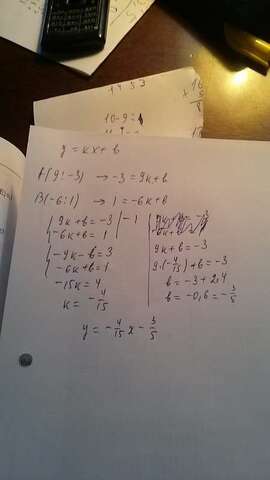 1453
10-9=1
y = kx + b
A(9; -3) → -3 = 9k + b
B(-6; 1) → 1 = -6k + b
{ 9k + b = -3 | -1
-6k + b = 1
{ -9k - b = 3
-6k + b = 1
-15k = 4
k = -4/15
9k + b = -3
9·(-4/15) + b = -3
b = -3 + 2,4
b = -0,6 = -3/5
y = -4/15 x - 3/5